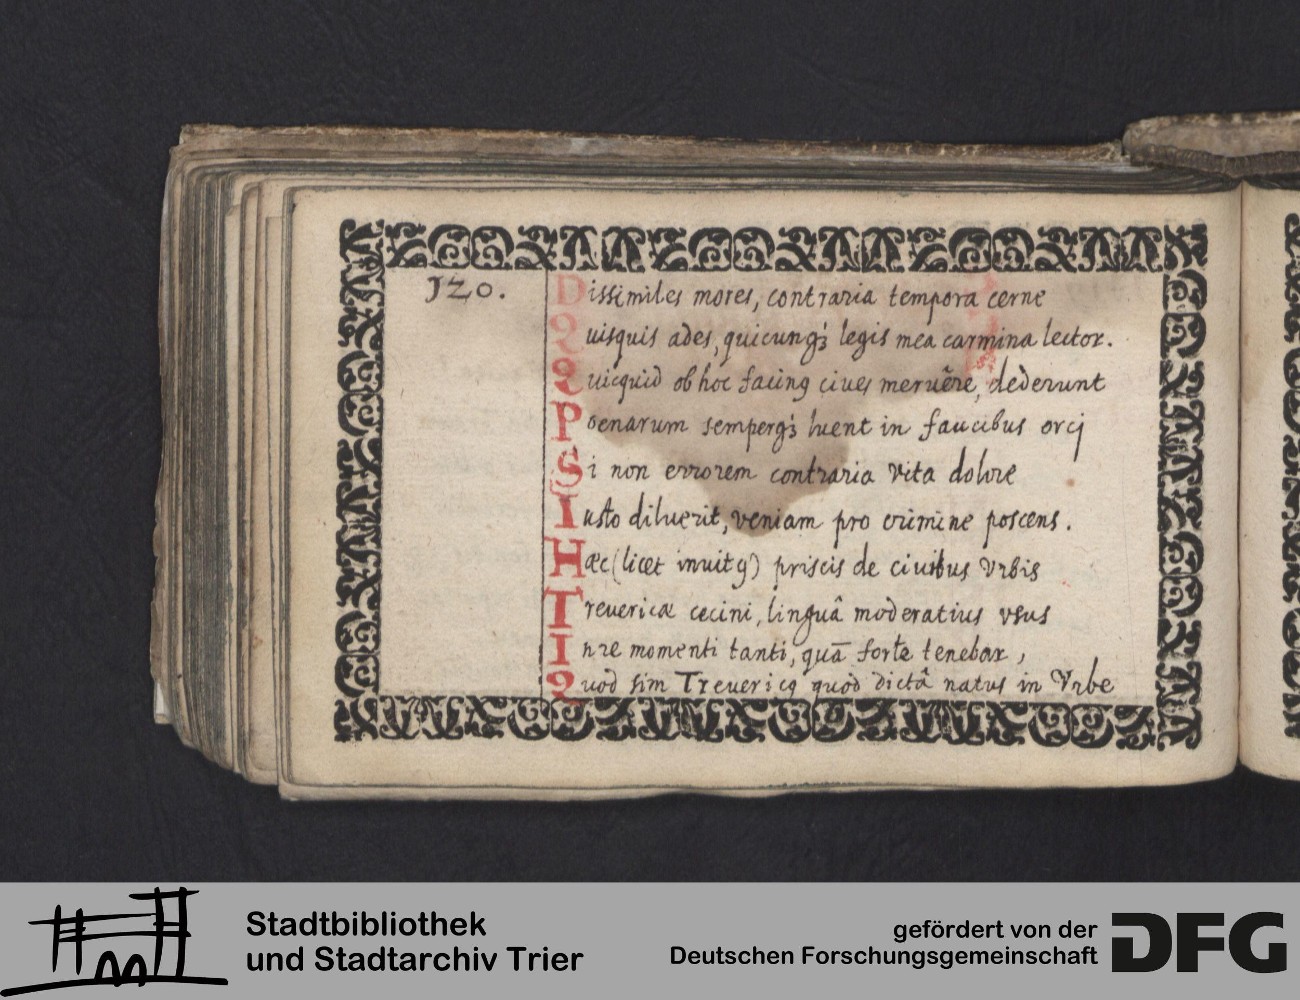 120.
Dissimiles mores, contraria tempora cerne
Quisquis ades, quicunqꝫ legis mea carmina lector.
Quicquid ob hoc facinꝰ ciues meruêre, dederunt
Poenarum semperqꝫ luent in faucibus orcj
Si non errorem contraria vita dolore
Iusto diluerit, veniam pro crimine poscens.
Hæc (licet inuitꝰ) priscis de ciuibus Vrbis
Treuericæ cecini, linguâ moderatius vsus
In re momenti tanti, quā forte tenebar,
Quod sim Treuericꝰ quod dictâ natus in Vrbe
Stadtbibliothek
und Stadtarchiv Trier
gefördert von der
Deutschen Forschungsgemeinschaft
DFG